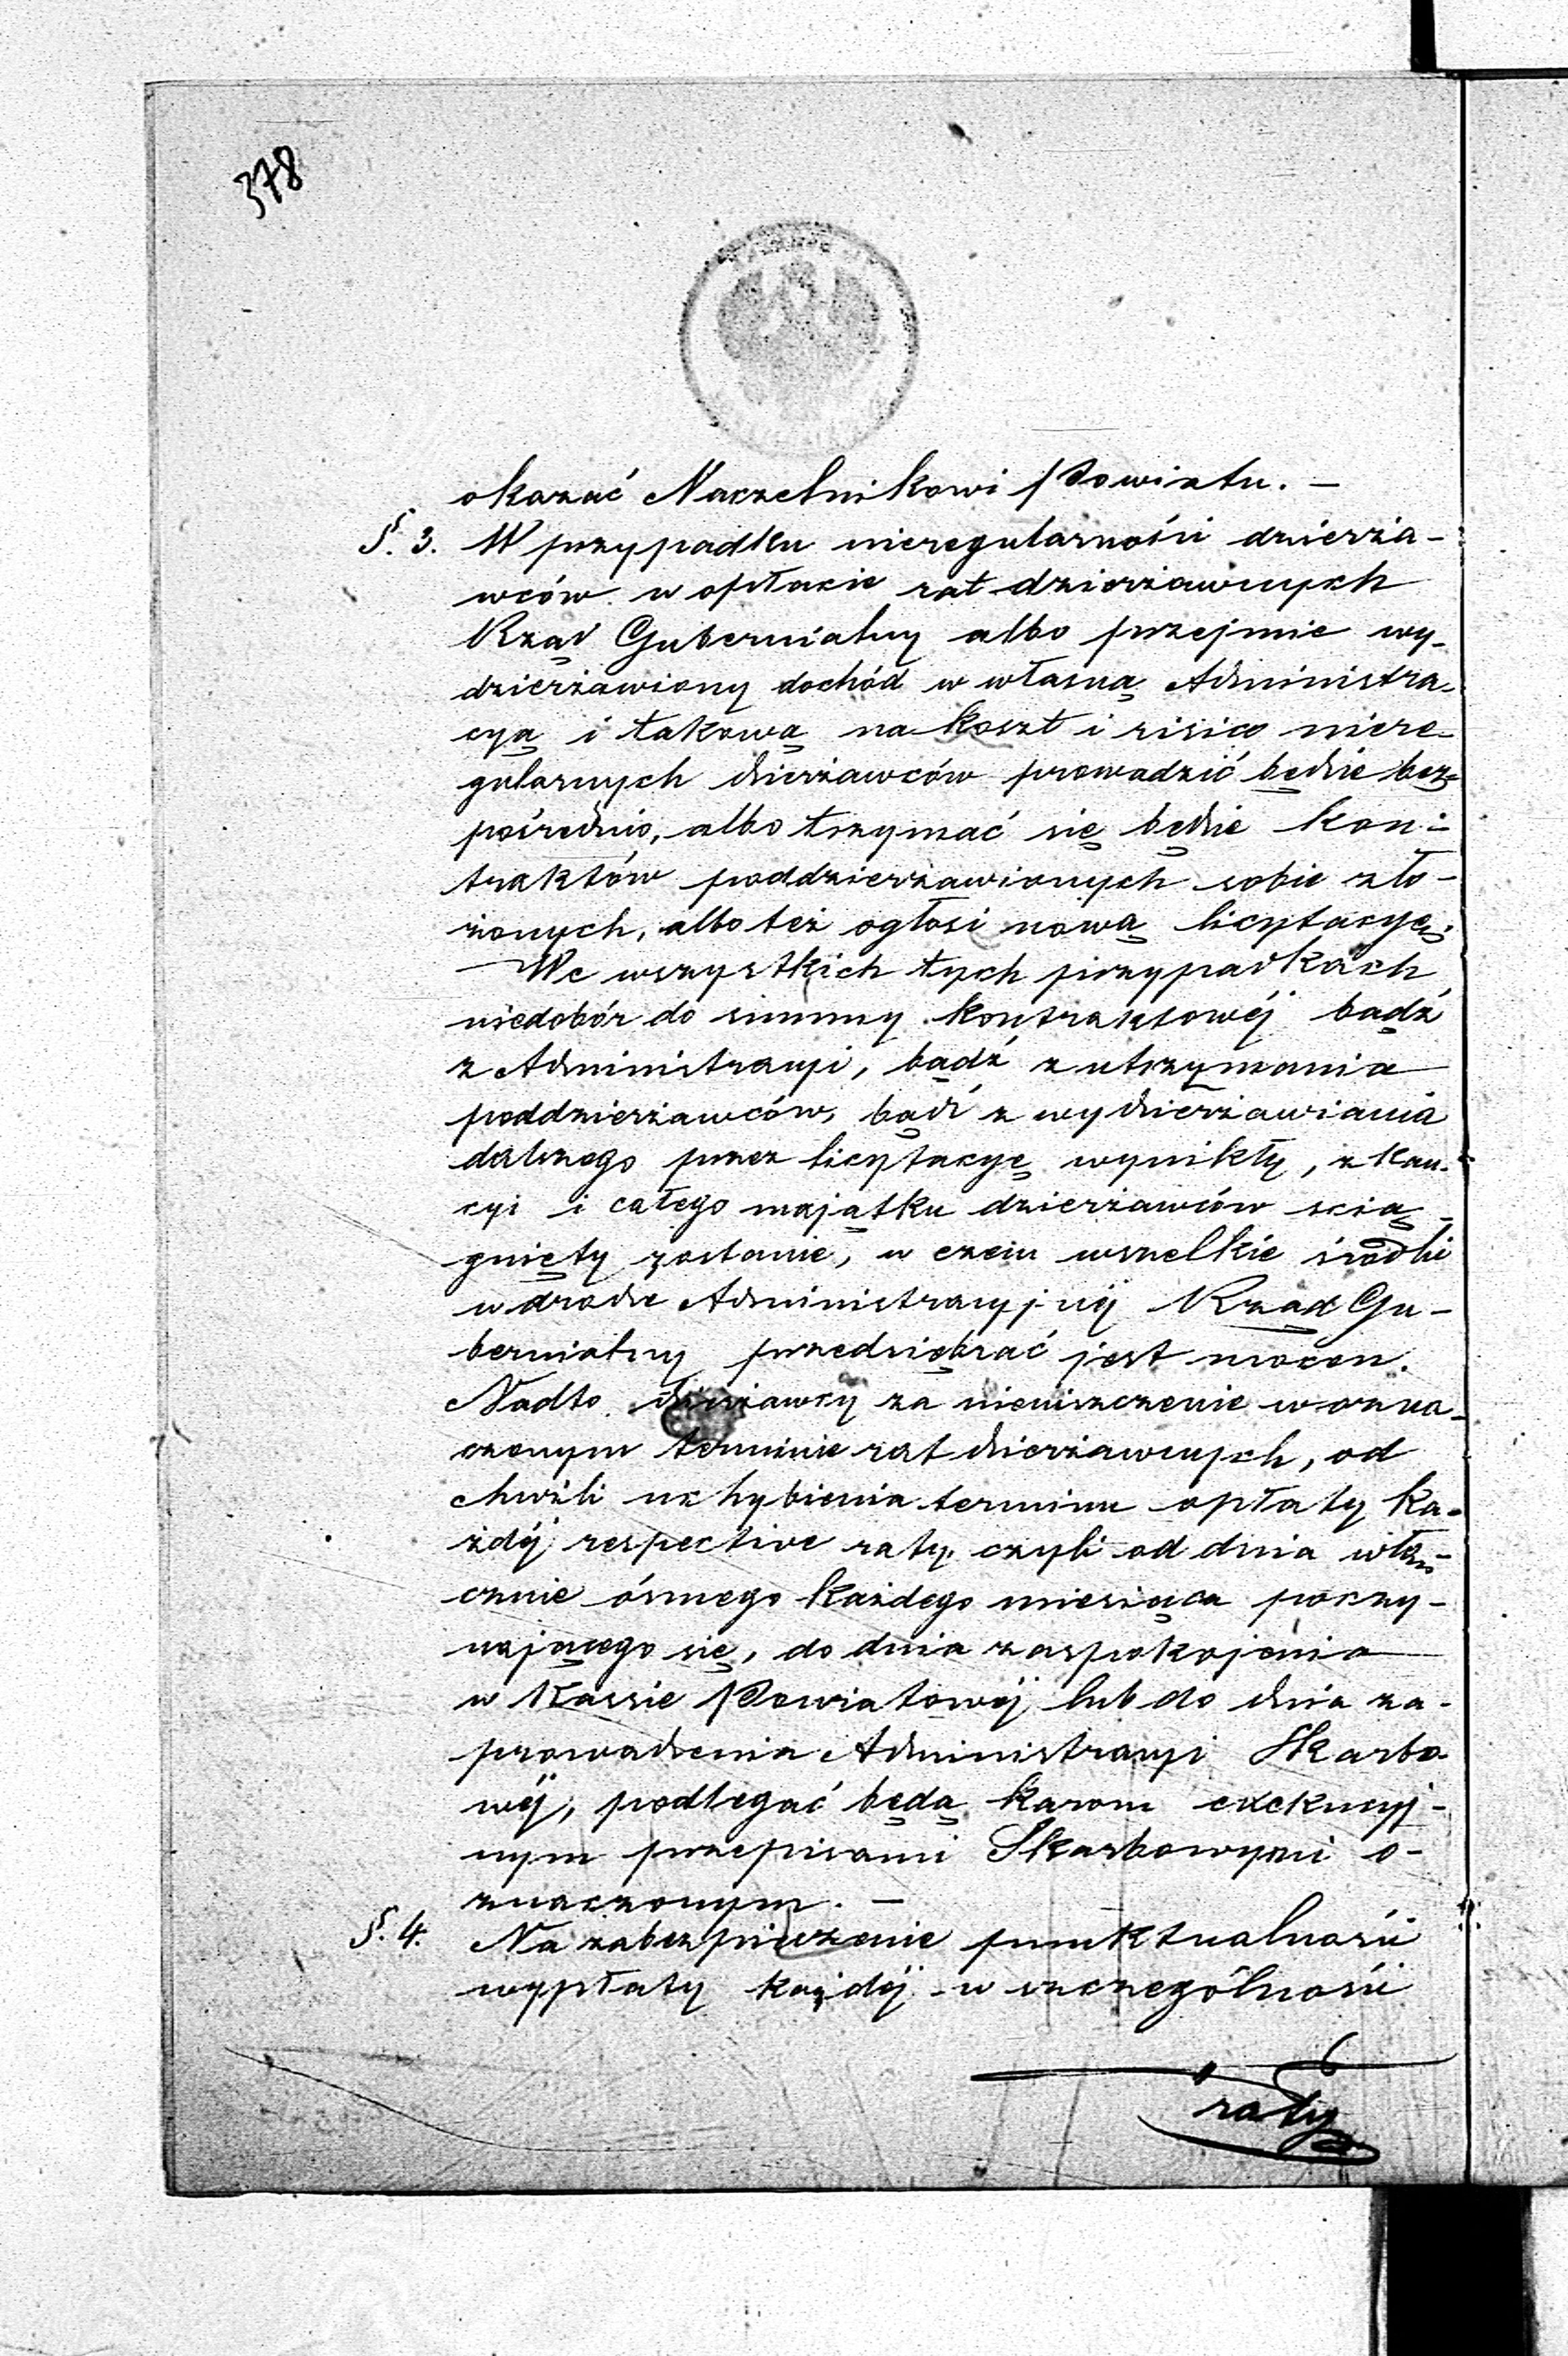 378
okazać Naczelnikowi Powiatu. —
§. 3. W przypadku nieregularności dzierża-
wców w opłacie rat dzierżawnych
Rząd Gubernialny albo przejmie wy-
dzierżawiony dochód w własną Administra-
cyą i takową na koszt i risico niere-
gularnych dzierżawców prowadzić będzie bez-
pośrednio, albo trzymać się będzie kon-
traktów poddzierżawionych sobie zło-
żonych, albo też ogłosi nową licytacyę;
— We wszystkich tych przypadkach
niedobór do summy kontraktowéj bądź
z Administracyi, bądź z utrzymania
poddzierżawców, bądź z wydzierżawiania
dalszego przez licytacyę wynikły, z kau-
cyi i całego majątku dzierżawców ścią-
gnięty zostanie, w czém wszelkie środki
w drodze Administracyjnéj Rząd Gu-
bernialny przedsiębrać jest mocen.
Nadto dzierżawcy za nieuiszczenie w ozna-
czonym terminie rat dzierżawnych, od
chwili uchybienia terminu opłaty ka-
żdéj respective raty, czyli od dnia włą-
cznie ósmego każdego miesiąca poczy-
nającego się, do dnia zaspokojenia
w Kassie Powiatowéj lub do dnia za-
prowadzenia Administracyi Skarbo-
wéj, podlegać będą karom exekucyj-
nym przepisami Skarbowymi o-
znaczonym. —
§. 4. Na zabezpieczenie punktualności
wypłaty każdéj w szczególności
raty